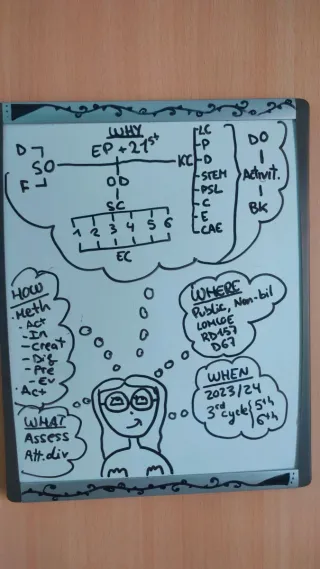 WHY
EP + 21st
D
SO
F
OD
SC
1 2 3 4 5 6
EC
KC
LC
P
D
STEM
PSL
C
E
CAE
DO
Activit.
BK
HOW
Meth
Act
- In
- Creat
- Dig
- Pre
- Ev
Act
WHERE
Public, Non-bil
LOMLOE
RD157
D67
WHEN
2023/24
3rd cycle/5th
6th
WHAT
Assess
Att.div